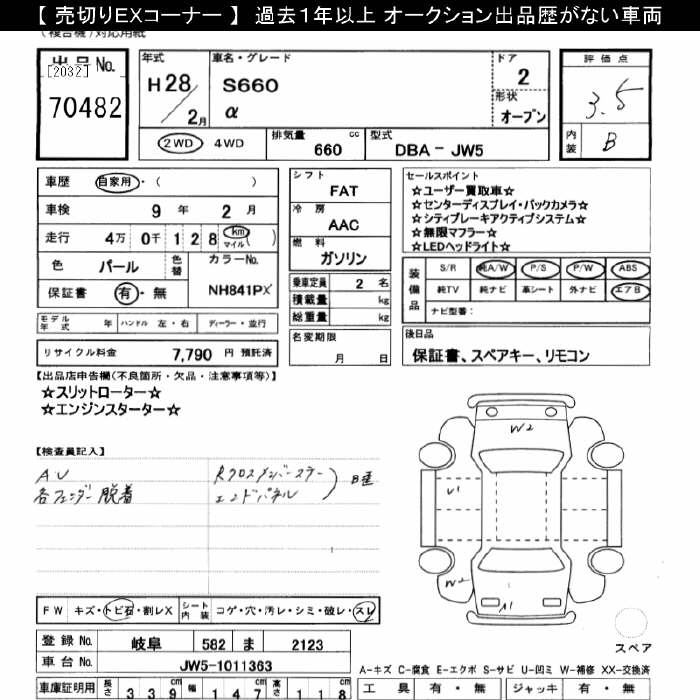 【 売切りEXコーナー 】 過去1年以上 オークション出品歴がない車両
(複合機)対応用紙
出品 No.
[2032]
70482
年式
H28
2月
車名・グレード
S660
α
ドア
2
形状
オープン
評価点
3.5
内装
B
2WD 4WD
排気量 cc
660
型式
DBA - JW5
車歴 自家用・( )
車検 9 年 2 月
走行 4万 0千 1 2 8 km マイル ( )
色 パール 色替 カラーNo.
保証書 有・無 NH841P
シフト
FAT
冷房
AAC
燃料
ガソリン
乗車定員 2 名
積載量 kg
総重量 kg
セールスポイント
☆ユーザー買取車☆
☆センターディスプレイ・バックカメラ☆
☆シティブレーキアクティブシステム☆
☆無限マフラー☆
☆LEDヘッドライト☆
装備品
S/R 純A/W P/S P/W ABS
純TV 純ナビ 革シート 外ナビ エアB
ナビ型番:
モデル年式 年 ハンドル 左・右 ディーラー・並行
リサイクル料金 7,790 円 預託済
名変期限
月 日
後日品
保証書、スペアキー、リモコン
【出品店申告欄(不良箇所・欠品・注意事項等)】
☆スリットローター☆
☆エンジンスターター☆
【検査員記入】
A・U
各フェンダー脱着
Rクロスメンバーステー
エンドパネル
W2
U1
W2
A1
FW キズ・トビ石・割レX シート内装 コゲ・穴・汚レ・シミ・破レ・スレ
登録 No. 岐阜 582 ま 2123
車台 No. JW5-1011363
スペア
A-キズ C-腐食 E-エクボ S-サビ U-凹ミ W-補修 XX-交換済
車庫証明用 長さ 3 3 9 cm 幅 1 4 7 cm 高さ 1 1 8 cm
工具 有・無 ジャッキ 有・無